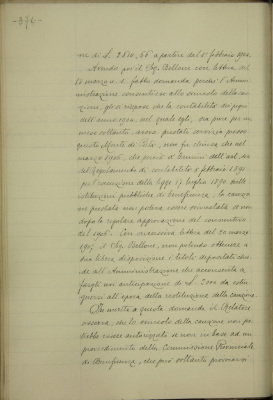 -374-
ne di L. 2820,66 a partire dal 1° febbraio 1902.
Avendo poi il Sig. Bellone con lettera del
marzo fatto domanda, perchè l'Ammi-
nistrazione consentisse allo svincolo della cau-
zione, gli si rispose che la contabilità dei pegni
dell'anno 1902, nel quale egli, sia pure per un
mese soltanto, aveva prestato servizio presso
questo Monte di Pietà, non fu chiusa che nel
marzo 1906, che perciò a termini dell'art.
del Regolamento di contabilità 5 febbraio 1891
per l'esecuzione della legge 17 luglio 1890 sulle
istituzioni pubbliche di beneficenza, la cauzio-
ne prestata non poteva essere svincolata se non
dopo la regolare approvazione del consuntivo
del 1906. Con successiva lettera del 20 marzo
1907 il Sig. Bellone, non potendo ottenere a
sua libera disposizione i titoli depositati chie-
de all'Amministrazione che acconsenta a
fargli una anticipazione di L. 2000 da resti-
tuirsi all'epoca della restituzione della cauzione.
In merito a questa domanda il Relatore
osserva, che lo svincolo della cauzione non po-
trebbe essere autorizzato se non in base ad un
provvedimento della Commissione Provinciale
di Beneficenza, che però soltanto provvisoria-